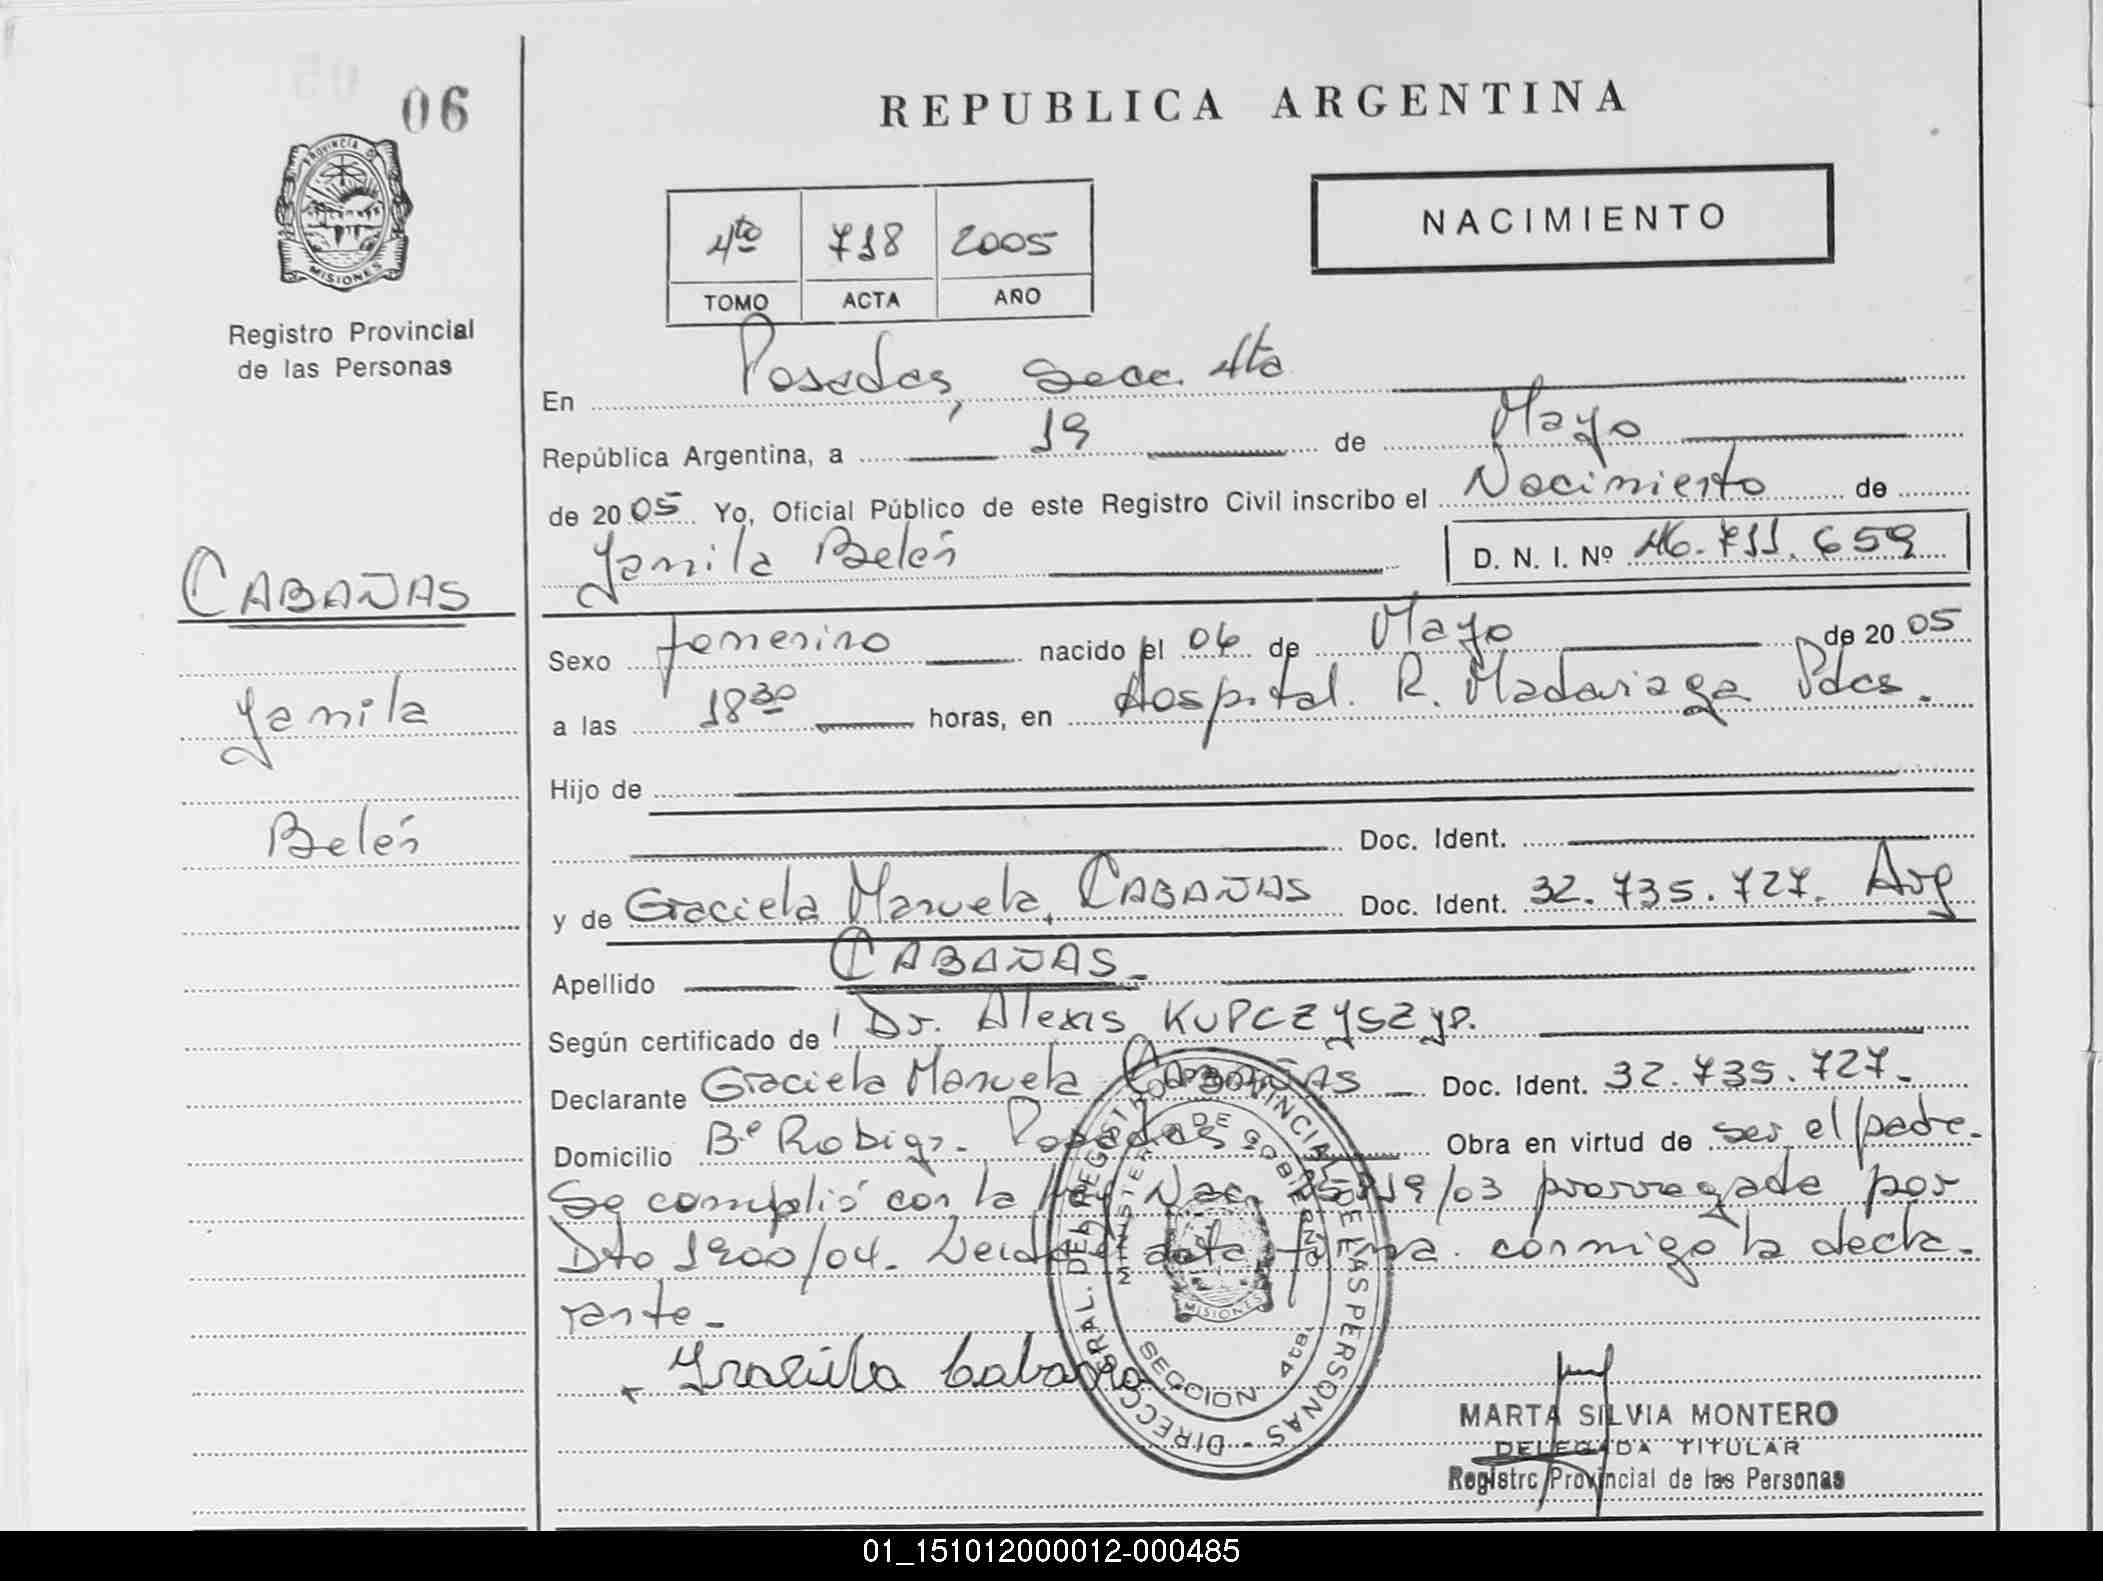 06
PROVINCIA D
MISIONES
Registro Provincial
de las Personas
REPUBLICA ARGENTINA
NACIMIENTO
4to 718 2005
TOMO ACTA AÑO
En Posadas, Secc. 4ta
República Argentina, a 19 de Mayo
de 2005 Yo, Oficial Público de este Registro Civil inscribo el Nacimiento de
Yamila Belén D. N. I. Nº 46.711.659
CABAÑAS
Yamila
Belén
Sexo femenino nacido el 06 de Mayo de 2005
a las 18 30 horas, en Hospital. R. Madariaga Pdas.
Hijo de
Doc. Ident.
y de Graciela Manuela, CABAÑAS Doc. Ident. 32.735.727. Arg
Apellido CABAÑAS.
Según certificado de Dr. Alexis KUPCZYSZYN.
Declarante Graciela Manuela CABAÑAS Doc. Ident. 32.735.727.
Domicilio Bº Posadas Obra en virtud de ser el padre.
Se complió con la Ley Nac. 25819/03 prorrogada por
Dto 1900/04. Leida el acta firma conmigo la decla-
rante.
Graciela Cabaña
DIRECC. GRAL. DEL REGISTRO PROVINCIAL DE LAS PERSONAS
MINISTERIO DE GOBIERNO
MISIONES
SECCION 4ta.
MARTA SILVIA MONTERO
DELEGADA TITULAR
Registro Provincial de las Personas
01_151012000012-000485